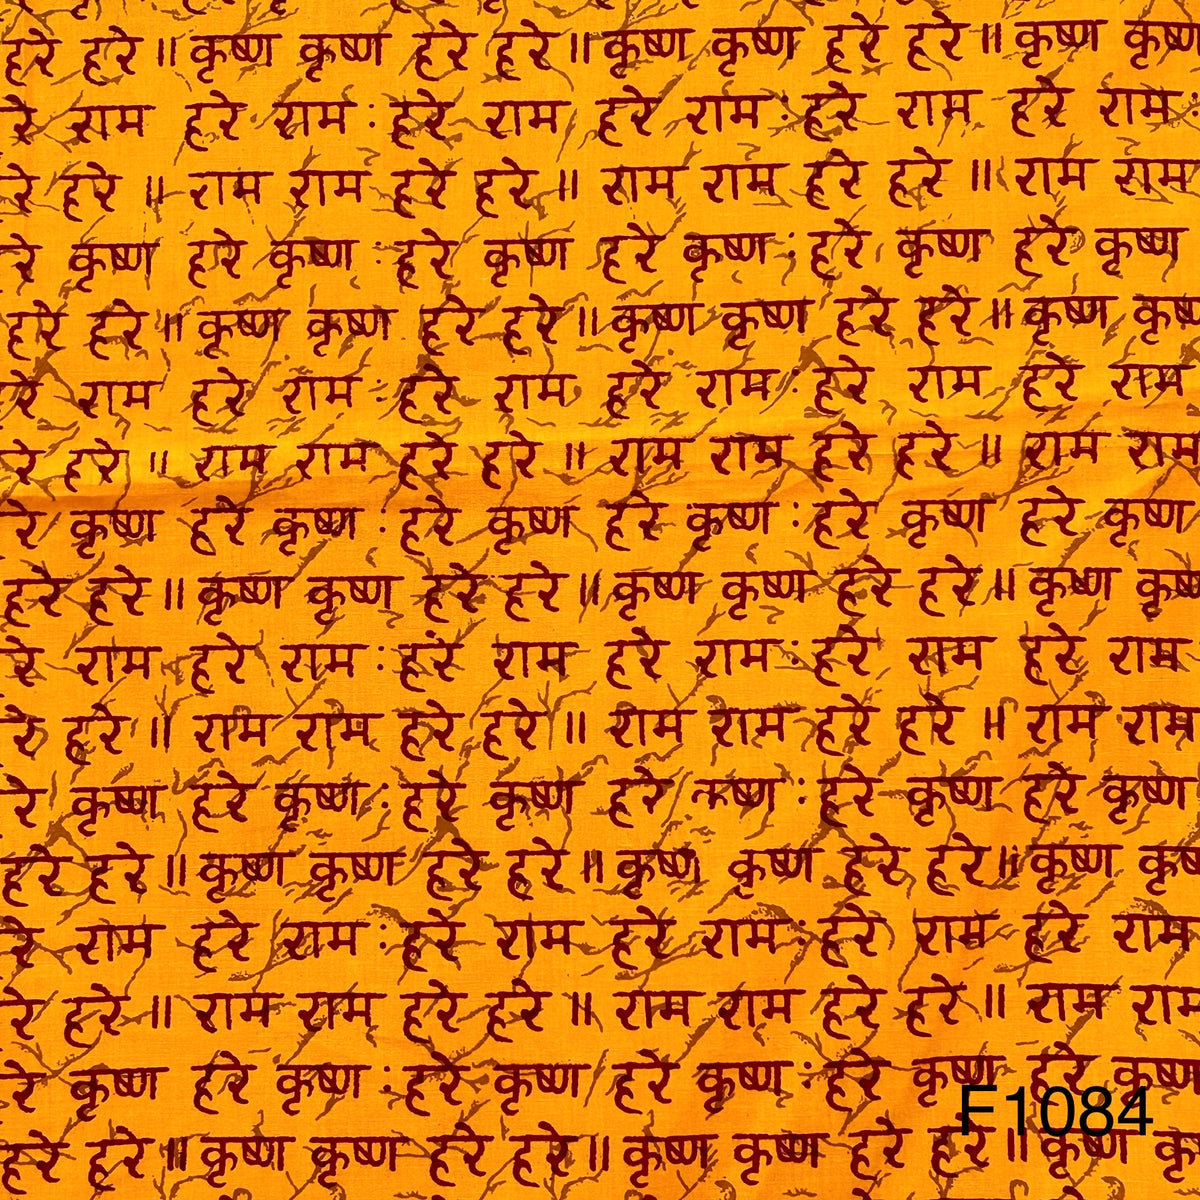 हरे हरे ॥ कृष्ण कृष्ण हरे हरे ॥ कृष्ण कृष्ण हरे हरे ॥ कृष्ण कृष्ण
रे राम हरे राम : हरे राम हरे राम : हरे राम हरे राम :
रे हरे ॥ राम राम हरे हरे ॥ राम राम हरे हरे ॥ राम राम
रे कृष्ण हरे कृष्ण : हरे कृष्ण हरे कृष्ण : हरे कृष्ण हरे कृष्ण
हरे हरे ॥ कृष्ण कृष्ण हरे हरे ॥ कृष्ण कृष्ण हरे हरे ॥ कृष्ण कृष्ण
रे राम हरे राम : हरे राम हरे राम : हरे राम हरे राम
रे हरे ॥ राम राम हरे हरे ॥ राम राम हरे हरे ॥ राम राम
रे कृष्ण हरे कृष्ण : हरे कृष्ण हरे कृष्ण : हरे कृष्ण हरे कृष्ण
हरे हरे ॥ कृष्ण कृष्ण हरे हरे ॥ कृष्ण कृष्ण हरे हरे ॥ कृष्ण कृष्ण
रे राम हरे राम : हरे राम हरे राम : हरे राम हरे राम
रे हरे ॥ राम राम हरे हरे ॥ राम राम हरे हरे ॥ राम राम
रे कृष्ण हरे कृष्ण : हरे कृष्ण हरे कृष्ण : हरे कृष्ण हरे कृष्ण
हरे हरे ॥ कृष्ण कृष्ण हरे हरे ॥ कृष्ण कृष्ण हरे हरे ॥ कृष्ण कृष्ण
रे राम हरे राम : हरे राम हरे राम : हरे राम हरे राम
रे हरे ॥ राम राम हरे हरे ॥ राम राम हरे हरे ॥ राम राम
रे कृष्ण हरे कृष्ण : हरे कृष्ण हरे कृष्ण : हरे कृष्ण हरे कृष्ण
F1084
हरे हरे ॥ कृष्ण कृष्ण हरे हरे ॥ कृष्ण कृष्ण हरे हरे ॥ कृष्ण कृ